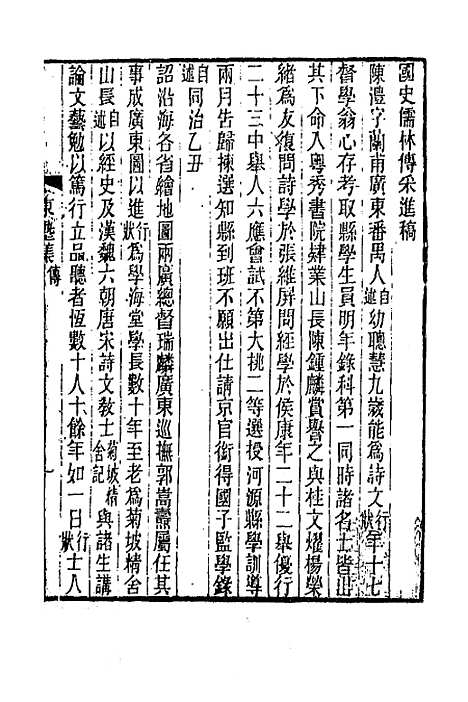 國史儒林傳采進稿
陳澧字蘭甫廣東番禺人自述幼聰慧九歲能為詩文行狀年十七
督學翁心存考取縣學生員明年錄科第一同時諸名士皆出
其下命入粵秀書院肄業山長陳鍾麟賞譽之與桂文燿楊榮
緒為友復問詩學於張維屏問經學於侯康年二十二舉優行
二十三中舉人六應會試不第大挑二等選授河源縣學訓導
兩月告歸揀選知縣到班不願出仕請京官銜得國子監學錄
自述同治乙丑
詔沿海各省繪地圖兩廣總督瑞麟廣東巡撫郭嵩燾屬任其
事成廣東圖以進行狀為學海堂學長數十年至老為菊坡精舍
山長自述以經史及漢魏六朝唐宋詩文教士菊坡精舍記與諸生講
論文藝勉以篤行立品聽者恆數十人十餘年如一日行狀士人
東塾集 傳